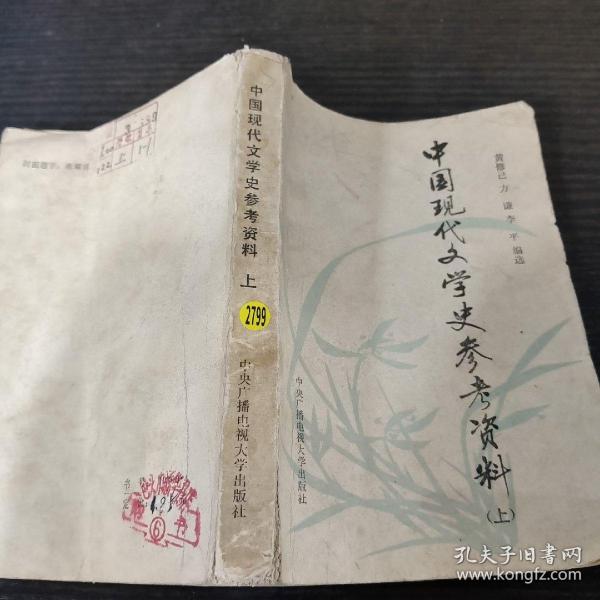 中国现代文学史参考资料
(上)
黄修己 方 谦 李 平 编选
中央广播电视大学出版社
中国现代文学史参考资料 上
2799
中央广播电视大学出版社
6
孔夫子旧书网
www.kongfz.com